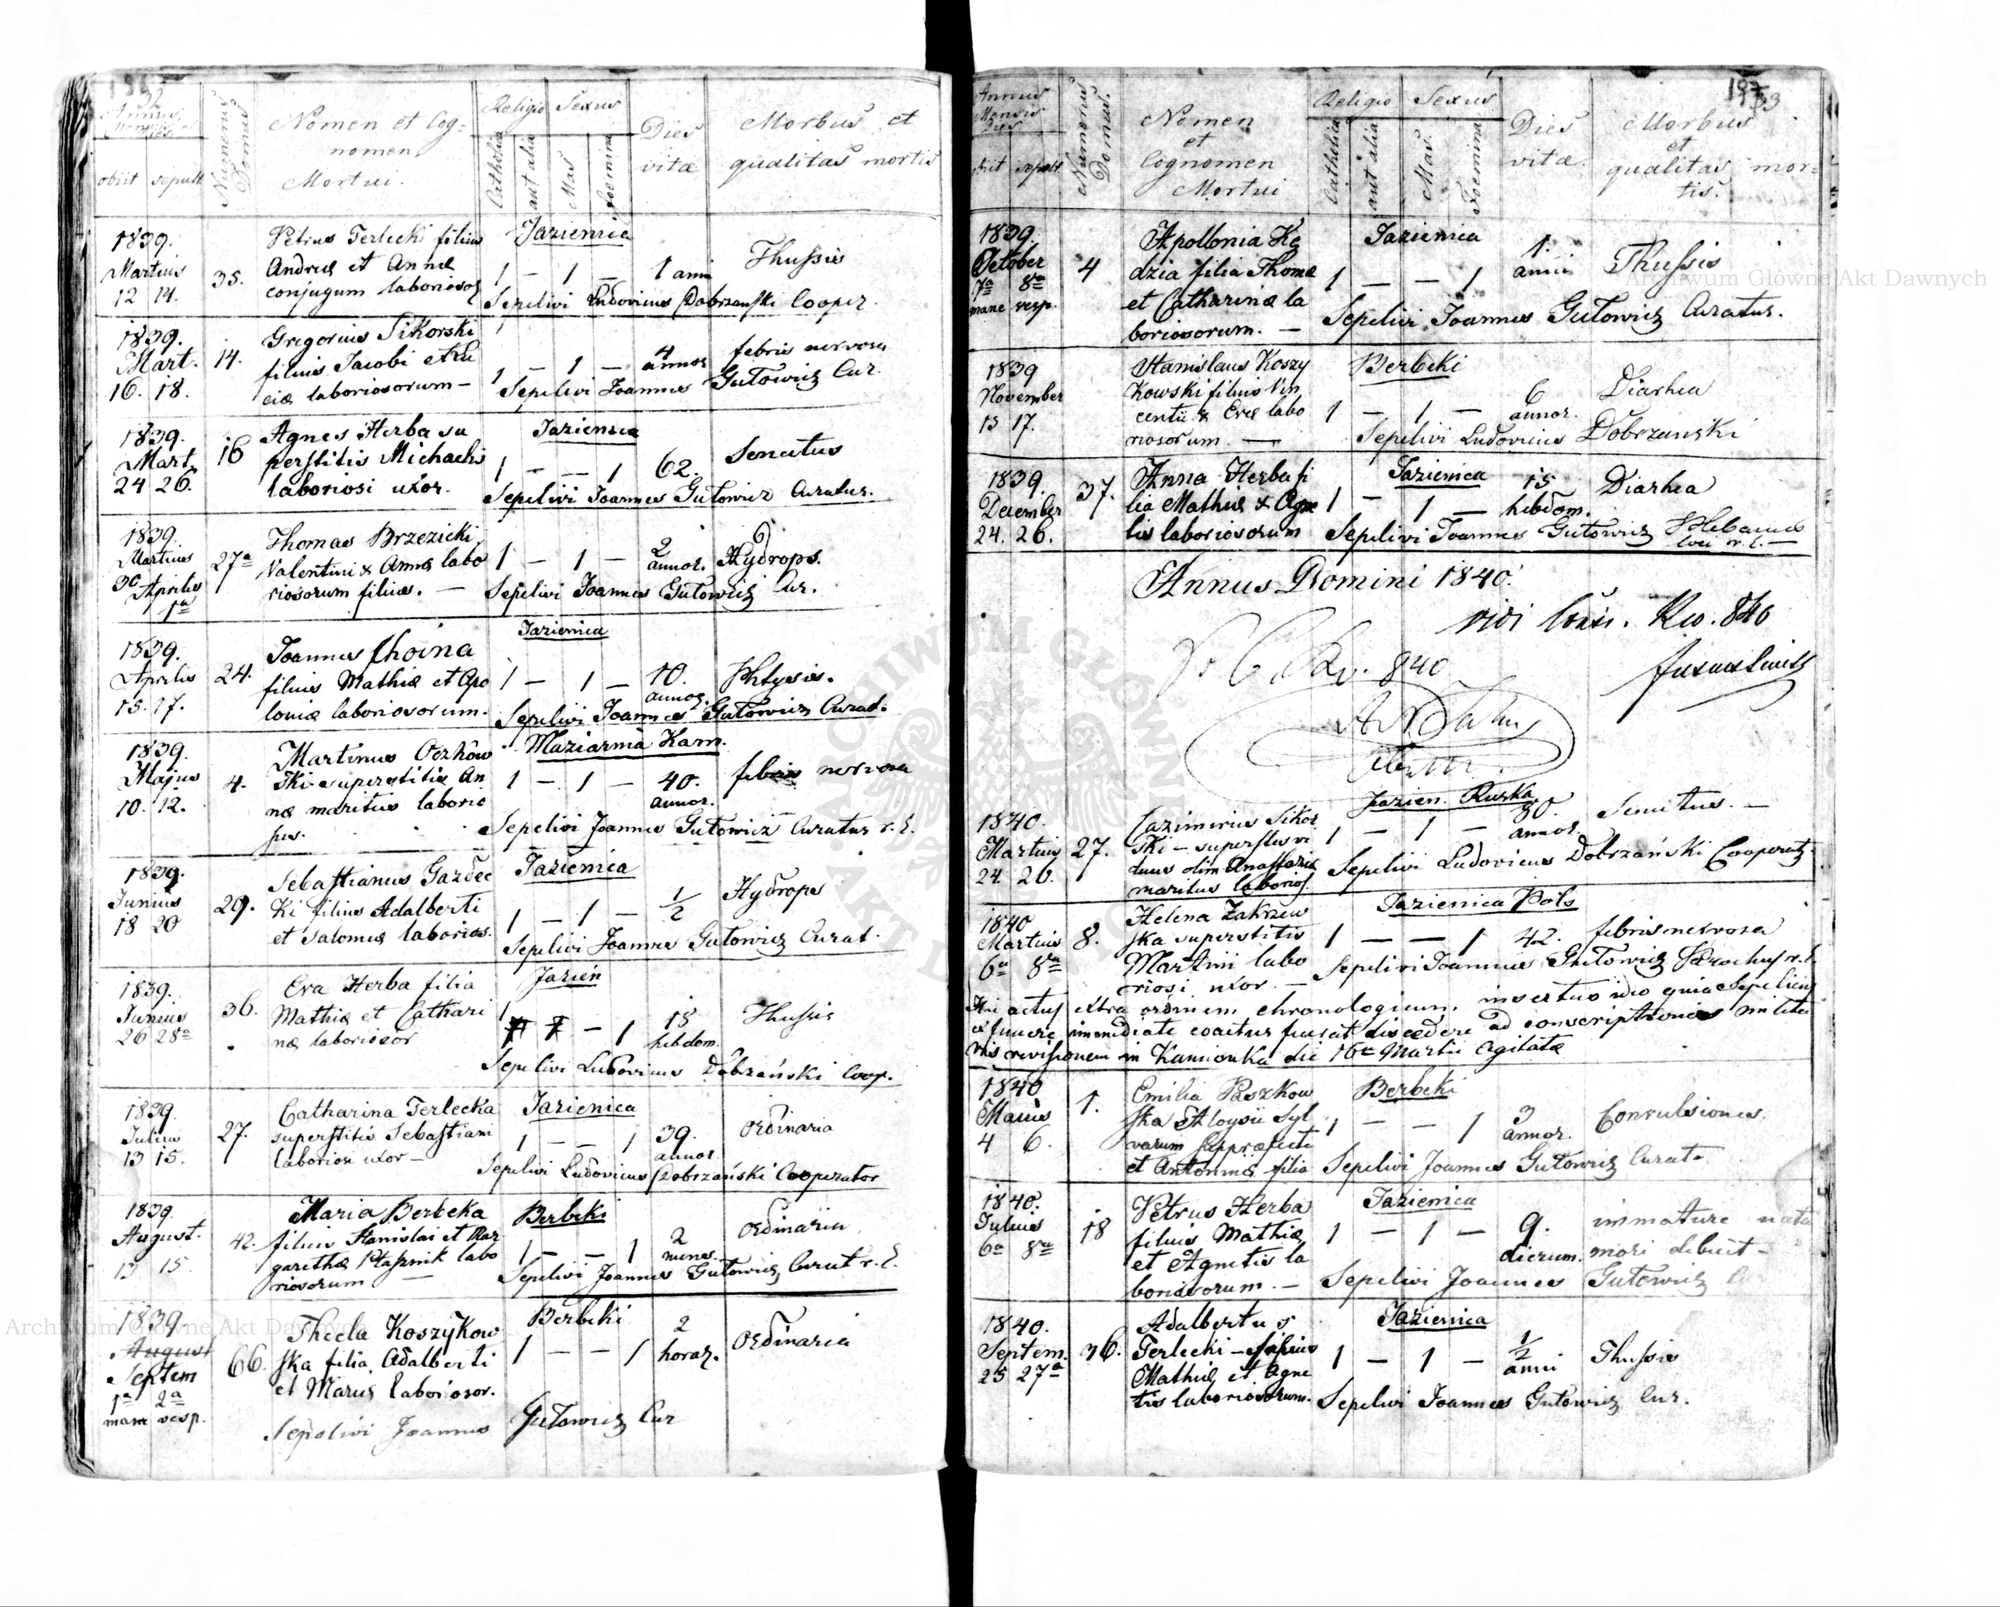 32
Annus
Mensis
Dies
obiit sepult
Numerus Domus
Nomen et Cog-
nomen
Mortui.
Religio
Catholica
aut alia
Sexus
Mas
Foemina
Dies
vitæ
Morbus et
qualitas mortis
1839.
Martius
12 14.
35.
Petrus Terlecki filius
Andreæ et Annæ
conjugum laborioso
Jazienica
1 — 1 —
1 anni
Thussis
Sepelivi Ludovicus Dobrzański Cooper.
1839.
Mart.
16. 18.
14.
Gregorius Sikorski
filius Jacobi et Lu
ciæ laboriosorum —
1 — 1 —
4
annor
febris nervosa
Sepelivi Joannes Gutowicz Cur.
1839.
Mart.
24 26.
16
Agnes Herba su
perstitis Michaelis
laboriosi uxor.
Jazienica
1 — — 1
62.
Senectus
Sepelivi Joannes Gutowicz Curatus.
1839.
Martius
30 Aprilis
1a
27a
Thomas Brzezicki
Valentini & Annæ labo
riosorum filius. —
1 — 1 —
2
annor.
Hydrops.
Sepelivi Joannes Gutowicz Cur.
1839.
Aprilis
15. 17.
24.
Joannes Choina
filius Mathiæ et Apo
loniæ laboriosorum.
Jazienica
1 — 1 —
10.
annor.
Phtysis.
Sepelivi Joannes Gutowicz Curat.
1839.
Majus
10. 12.
4.
Martinus Oczkow
ski superstitis An
næ maritus laborio
sus.
Maziarnia Kam.
1 — 1 —
40.
annor.
febris nervosa
Sepelivi Joannes Gutowicz Curatus r. l.
1839.
Junius
18 20
29.
Sebastianus Gazdec
ki filius Adalberti
et Salomeæ laborios.
Jazienica
1 — 1 —
1/2
Hydrops
Sepelivi Joannes Gutowicz Curat.
1839.
Junius
26 28a
36.
Eva Herba filia
Mathiæ et Cathari
næ laborioror
Jazien
1
— 1
18
hebdom.
Thussis
Sepelivi Ludovicus Dobrzański Coop.
1839.
Julius
13 15.
27.
Catharina Terlecka
superstitis Sebastiani
laboriosi uxor —
Jazienica
1 — — 1
39.
annor.
Ordinaria
Sepelivi Ludovicus Dobrzański Cooperator
1839.
August.
13 15.
42.
Maria Berbeka
filia Stanislai et Mar
garethæ Ptasznik labo
riosorum —
Berbeki
1 — — 1
2
mens.
Ordinaria
Sepelivi Joannes Gutowicz Curat r. l.
1839.
August
Septem
1a 2a
mane vesp.
66.
Thecla Koszykow
ska filia Adalberti
et Mariæ laborioror.
Berbeki
1 — — 1
2
horar.
Ordinaria
Sepelivi Joannes Gutowicz Cur
197
33
Annus
Mensis
Dies
obiit sepult
Numerus
Domus.
Nomen
et
Cognomen
Mortui
Religio
Catholica
aut alia
Sexus
Mas.
Foemina
Dies
vitæ.
Morbus
et
qualitas mor-
tis.
1839.
October
7a 8va
mane vesp.
4
Apollonia Kę
dzia filia Thomæ
et Catharinæ la
boriosorum. —
Jazienica
1 — — 1
1.
anni
Thussis
Sepelivi Joannes Gutowicz Curatus.
1839
November
15 17.
Stanislaus Koszy
kowski filius Vin
centii & Evæ labo
riosorum —
Berbeki
1 — 1 —
6
annor.
Diarhea
Sepelivi Ludovicus Dobrzanski
1839.
December
24. 26.
37.
Anna Herba fi
lia Mathiæ & Agne
tis laboriosorum
Jazienica
1 — 1 —
15
hebdom.
Diarhea
Sepelivi Joannes Gutowicz Plebanus
loci r. l. —
Annus Domini 1840.
vidi
840
840
1840.
Martius
24. 26.
27.
Cazimirus Sikor
ski — superstes vi
duus olim Anastasiæ
maritus laborios.
Jazien. Ruska
1 — 1 —
80.
annor.
Senectus. —
Sepelivi Ludovicus Dobrzański Cooperat.
1840
Martius
6a 8va
8.
Helena Zakrzew
ska superstitis
Martini labo
riosi uxor. —
Jazienica Pols
1 — — 1
42.
febris nervosa
Sepelivi Joannes Gutowicz Parochus r. l.
Hic actus extra ordinem chronologicum insertus ideo quia Sepeliens
a funere immediate coactus fuerat discedere ad conscriptionis milita
ris revisionem in Kamionka die 16a Martii agitatæ
1840
Maius
4 6.
1.
Emilia Paszkow
ska Aloysii Syl
varum Suppræfecti
et Antoninæ filia
Berbeki
1 — — 1
3
annor.
Convulsiones.
Sepelivi Joannes Gutowicz Curat.
1840.
Julius
6a 8va
18
Petrus Herba
filius Mathiæ
et Agnetis la
boriosorum. —
Jazienica
1 — 1 —
9.
dierum.
immature nata
mori debuit —
Sepelivi Joannes Gutowicz
1840.
Septem.
25 27a
36.
Adalbertus
Terlecki — filius
Mathiæ et Agne
tis laboriosorum.
Jazienica
1 — 1 —
1/2
anni
Thussis
Sepelivi Joannes Gutowicz Cur.
Archiwum Główne Akt Dawnych
Archiwum Główne Akt Dawnych
ARCHIWUM GŁÓWNE AKT DAWNYCH